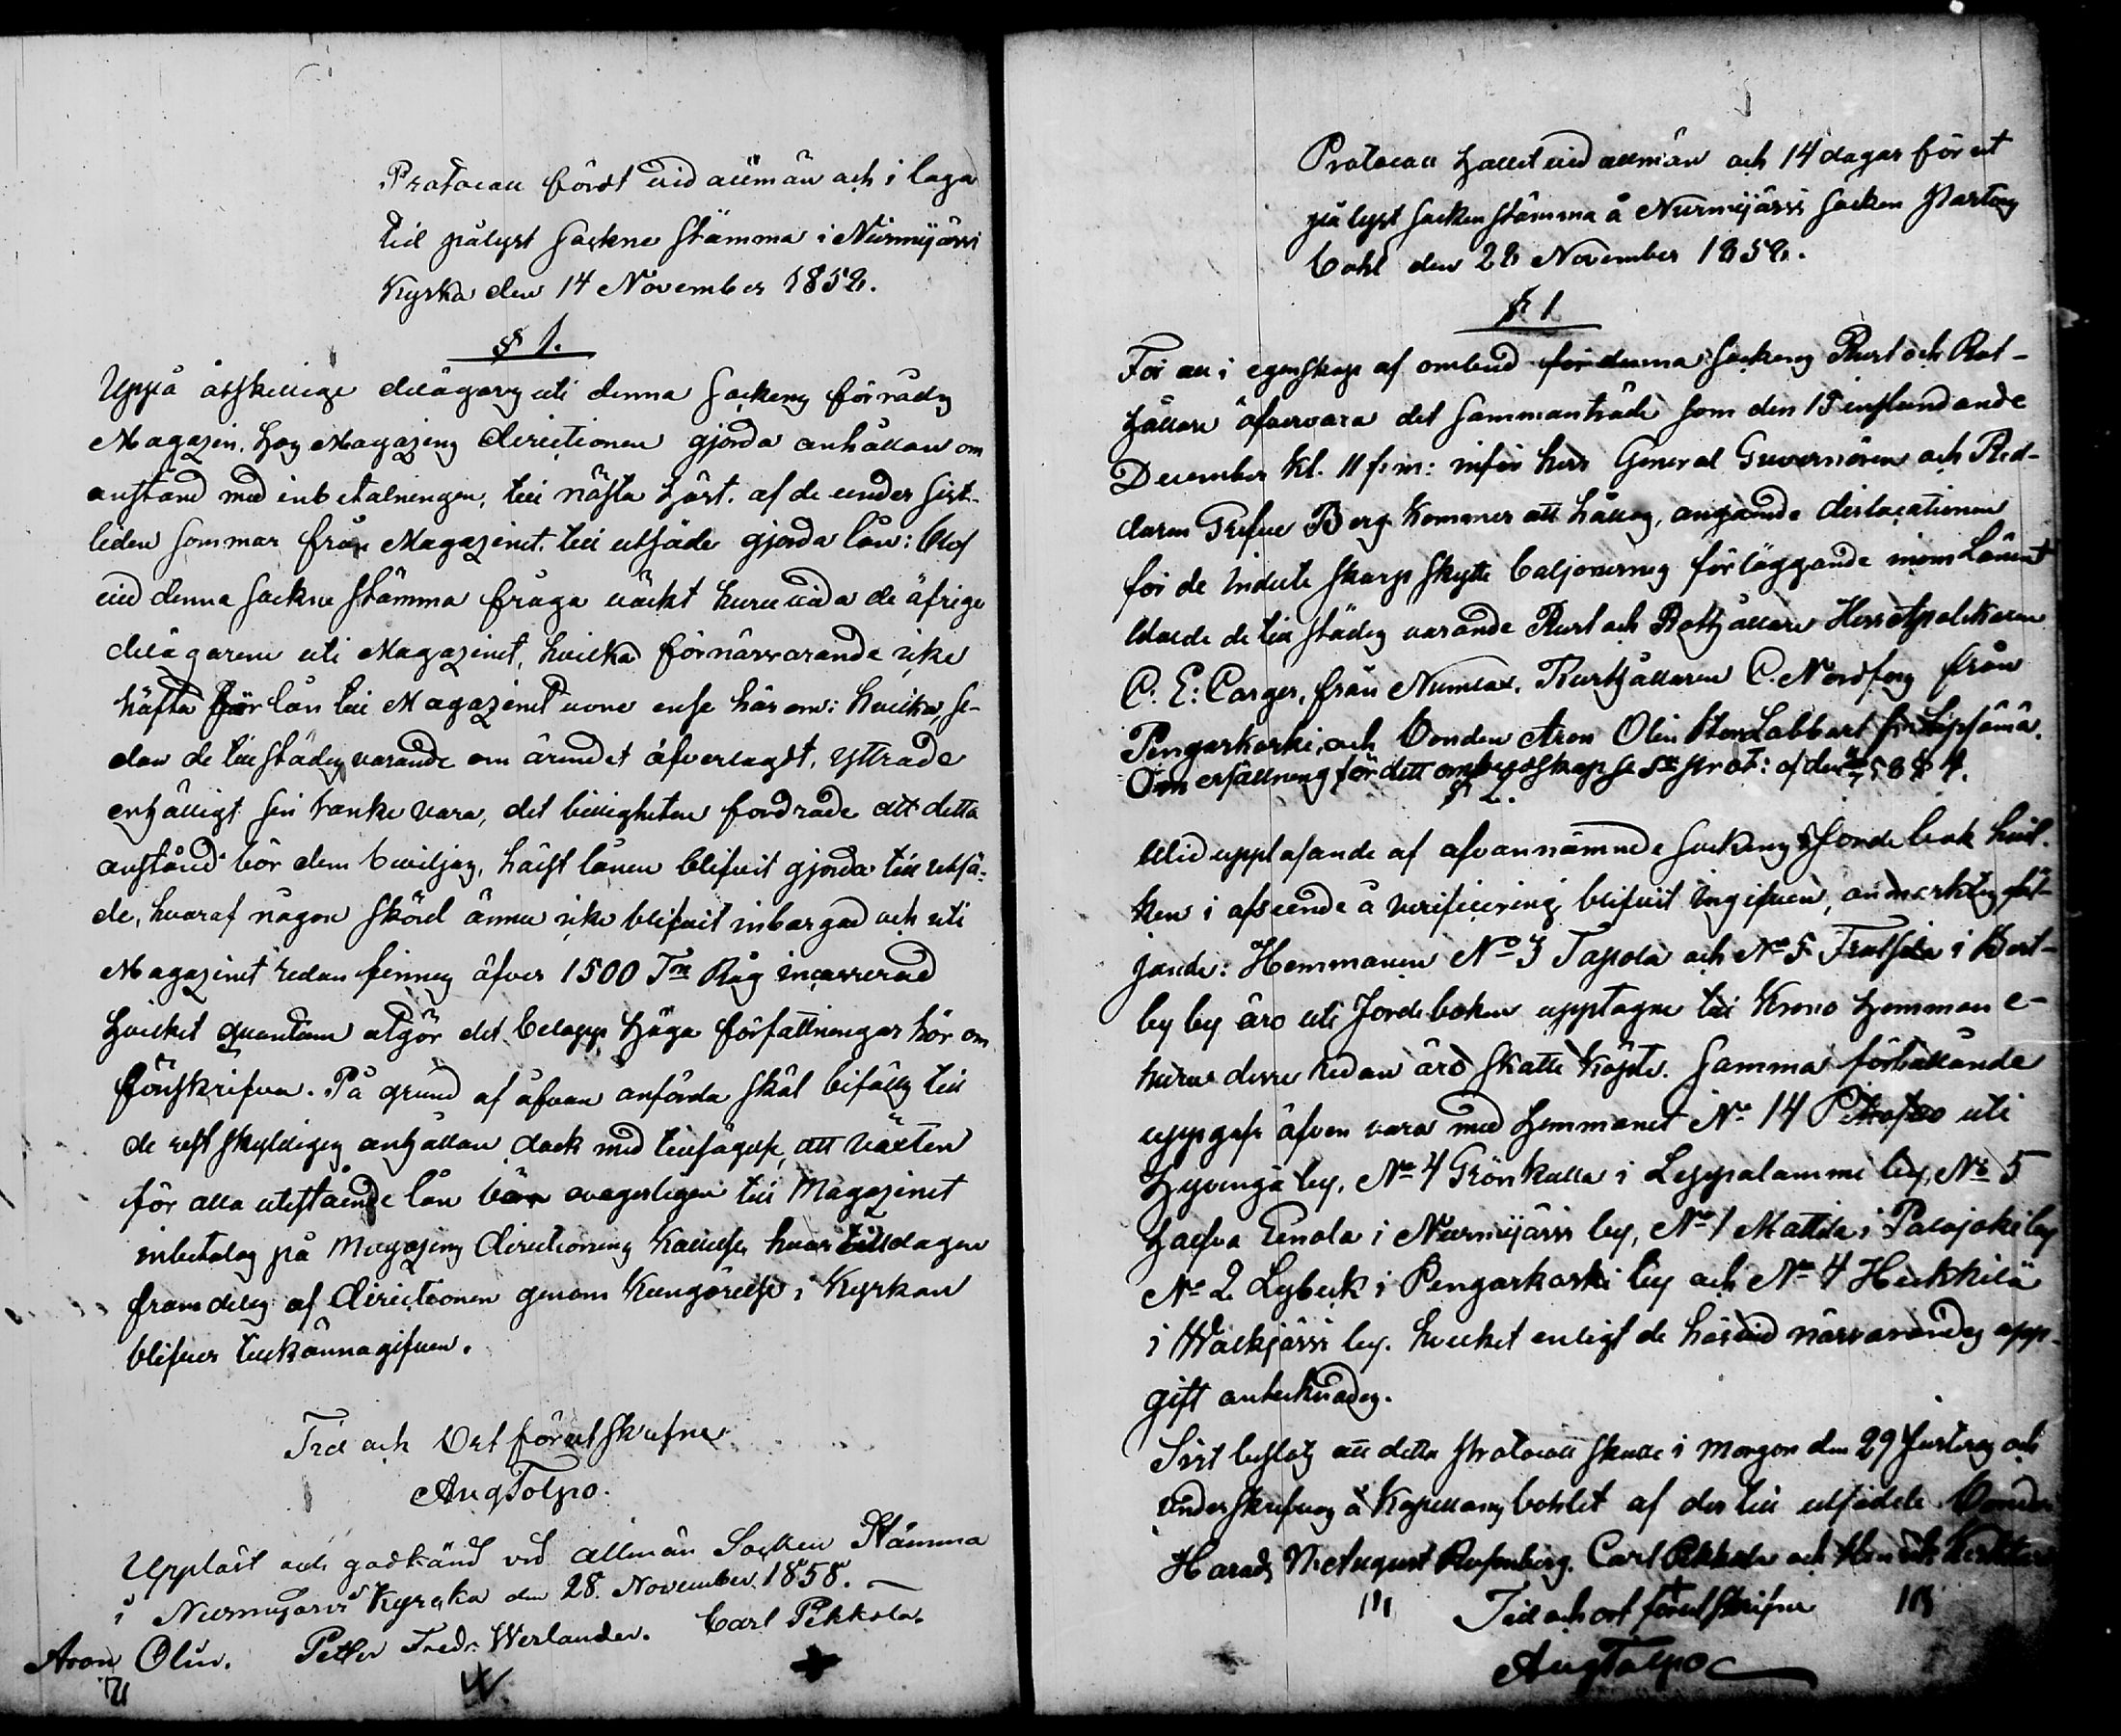 Protocoll fördt vid allmän och i laga
tid pålyst Sockne Stämma i Nurmijärvi
Kyrka den 14 November 1858.
§ 1.
Uppå åtskillige delägares uti denna Sockens förråds
Magazin, hos Magazins Directionen gjorda anhållan om
anstånd med inbetalningen, till nästa höst, af de under sist-
liden sommar från Magazinet till utsäde gjorda lån: blef
vid denna Sockne Stämma fråga väckt huruvida de öfrige
delägarene uti Magazinet, hvilka förnärvarande icke
häfta för lån till Magazinet vore ense härom: hvilka, se-
dan de tillstädes varande om ärendet öfverlagdt, yttrade
enhälligt sin tanke vara, det billigheten fordrade att detta
anstånd bör dem beviljas, hälst lånen blifvit gjorda till utsä-
de, hvaraf någon skörd ännu icke blifvit inbergad och uti
Magazinet redan finnes öfver 1500 Tnr Råg incasserad
hvilket quantum utgör det belopp Höga författningar här om
föreskrifva. På grund af ofvan anförda skäl bifölls till
de restskyldiges anhållan dock med tillsägelse, att växten
för alla utestående lån bör ovägerligen till Magazinet
inbetalas på Magazins Directionens kallelse, hvartill dagen
framdeles af Directionen genom Kungörelse i Kyrkan
blifver tillkännagifven.
Tid och Ort förutskrifne
Aug Tolpo.
Uppläst och godkänd vid allmän Socken Stämma
i Nurmijärvi Kyrcka den 28. November 1858.
Aron Olin. Petter Fredr. Werlander. Carl Pekkola.
Protocoll hållet vid allmän och 14 dagar förut
pålyst Sockenstämma å Nurmijärvi Socken Pastors
Bohl den 28 November 1858.
§ 1
För att i egenskap af ombud för denna Sockens Rust och Rot-
hållare öfvervara det sammanträde som den 15 instundande
December kl. 11 f: m: inför herr General Guvernören och Rid-
daren Grefve Berg kommer att hållas, angående dislocationen
för de Indelte Skarpskytte bataljonernes förläggande inom Länet
valde de tillstädes varande Rust och Rothållare Herr Apothekaren
C. E: Carger, från Numlax, Rusthållaren C. Nordfors från
Pengarkoski, och Bonden Aron Olin Stor Labbart fr Lepsämä.
Om ersättning för dett ombudskap se Sk prot: af den 58 § 4.
§ 2.
Vid uppläsande af ofvannämnde Sockens Jordebok hvil-
ken i afseende å verificering blifvit ingifven, anmärktes föl-
jande: Hemmanen No 3 Tapola och No 5 Fratsila i Pert-
by by äro uti Jordeboken upptagne till Krono hemman e-
huru desse redan äro Skatte köpte. Samma förhållande
uppgafs äfven vara med hemmanet No 14 uti
Hyvinge by, No 4 Grönkulla i Leppälammi by, No 5
halfva Einola i Nurmijärvi by, No 1 Mattila i Palojoki by
No 2 Lybeck i Pengarkoski by och No 4 Heikkilä
i Walkjärvi by. hvilket enligt de härvid närvarandes upp-
gift antecknades.
Sist beslöts att detta protocoll skulle i morgon den 29 justeras och
underskrifvas å Kapellans bohlet af der till utsedde Bonden
Harald August Rosenberg, Carl Pekkola och Henrik
Tid och ort förutskrifne
Aug Tolpo